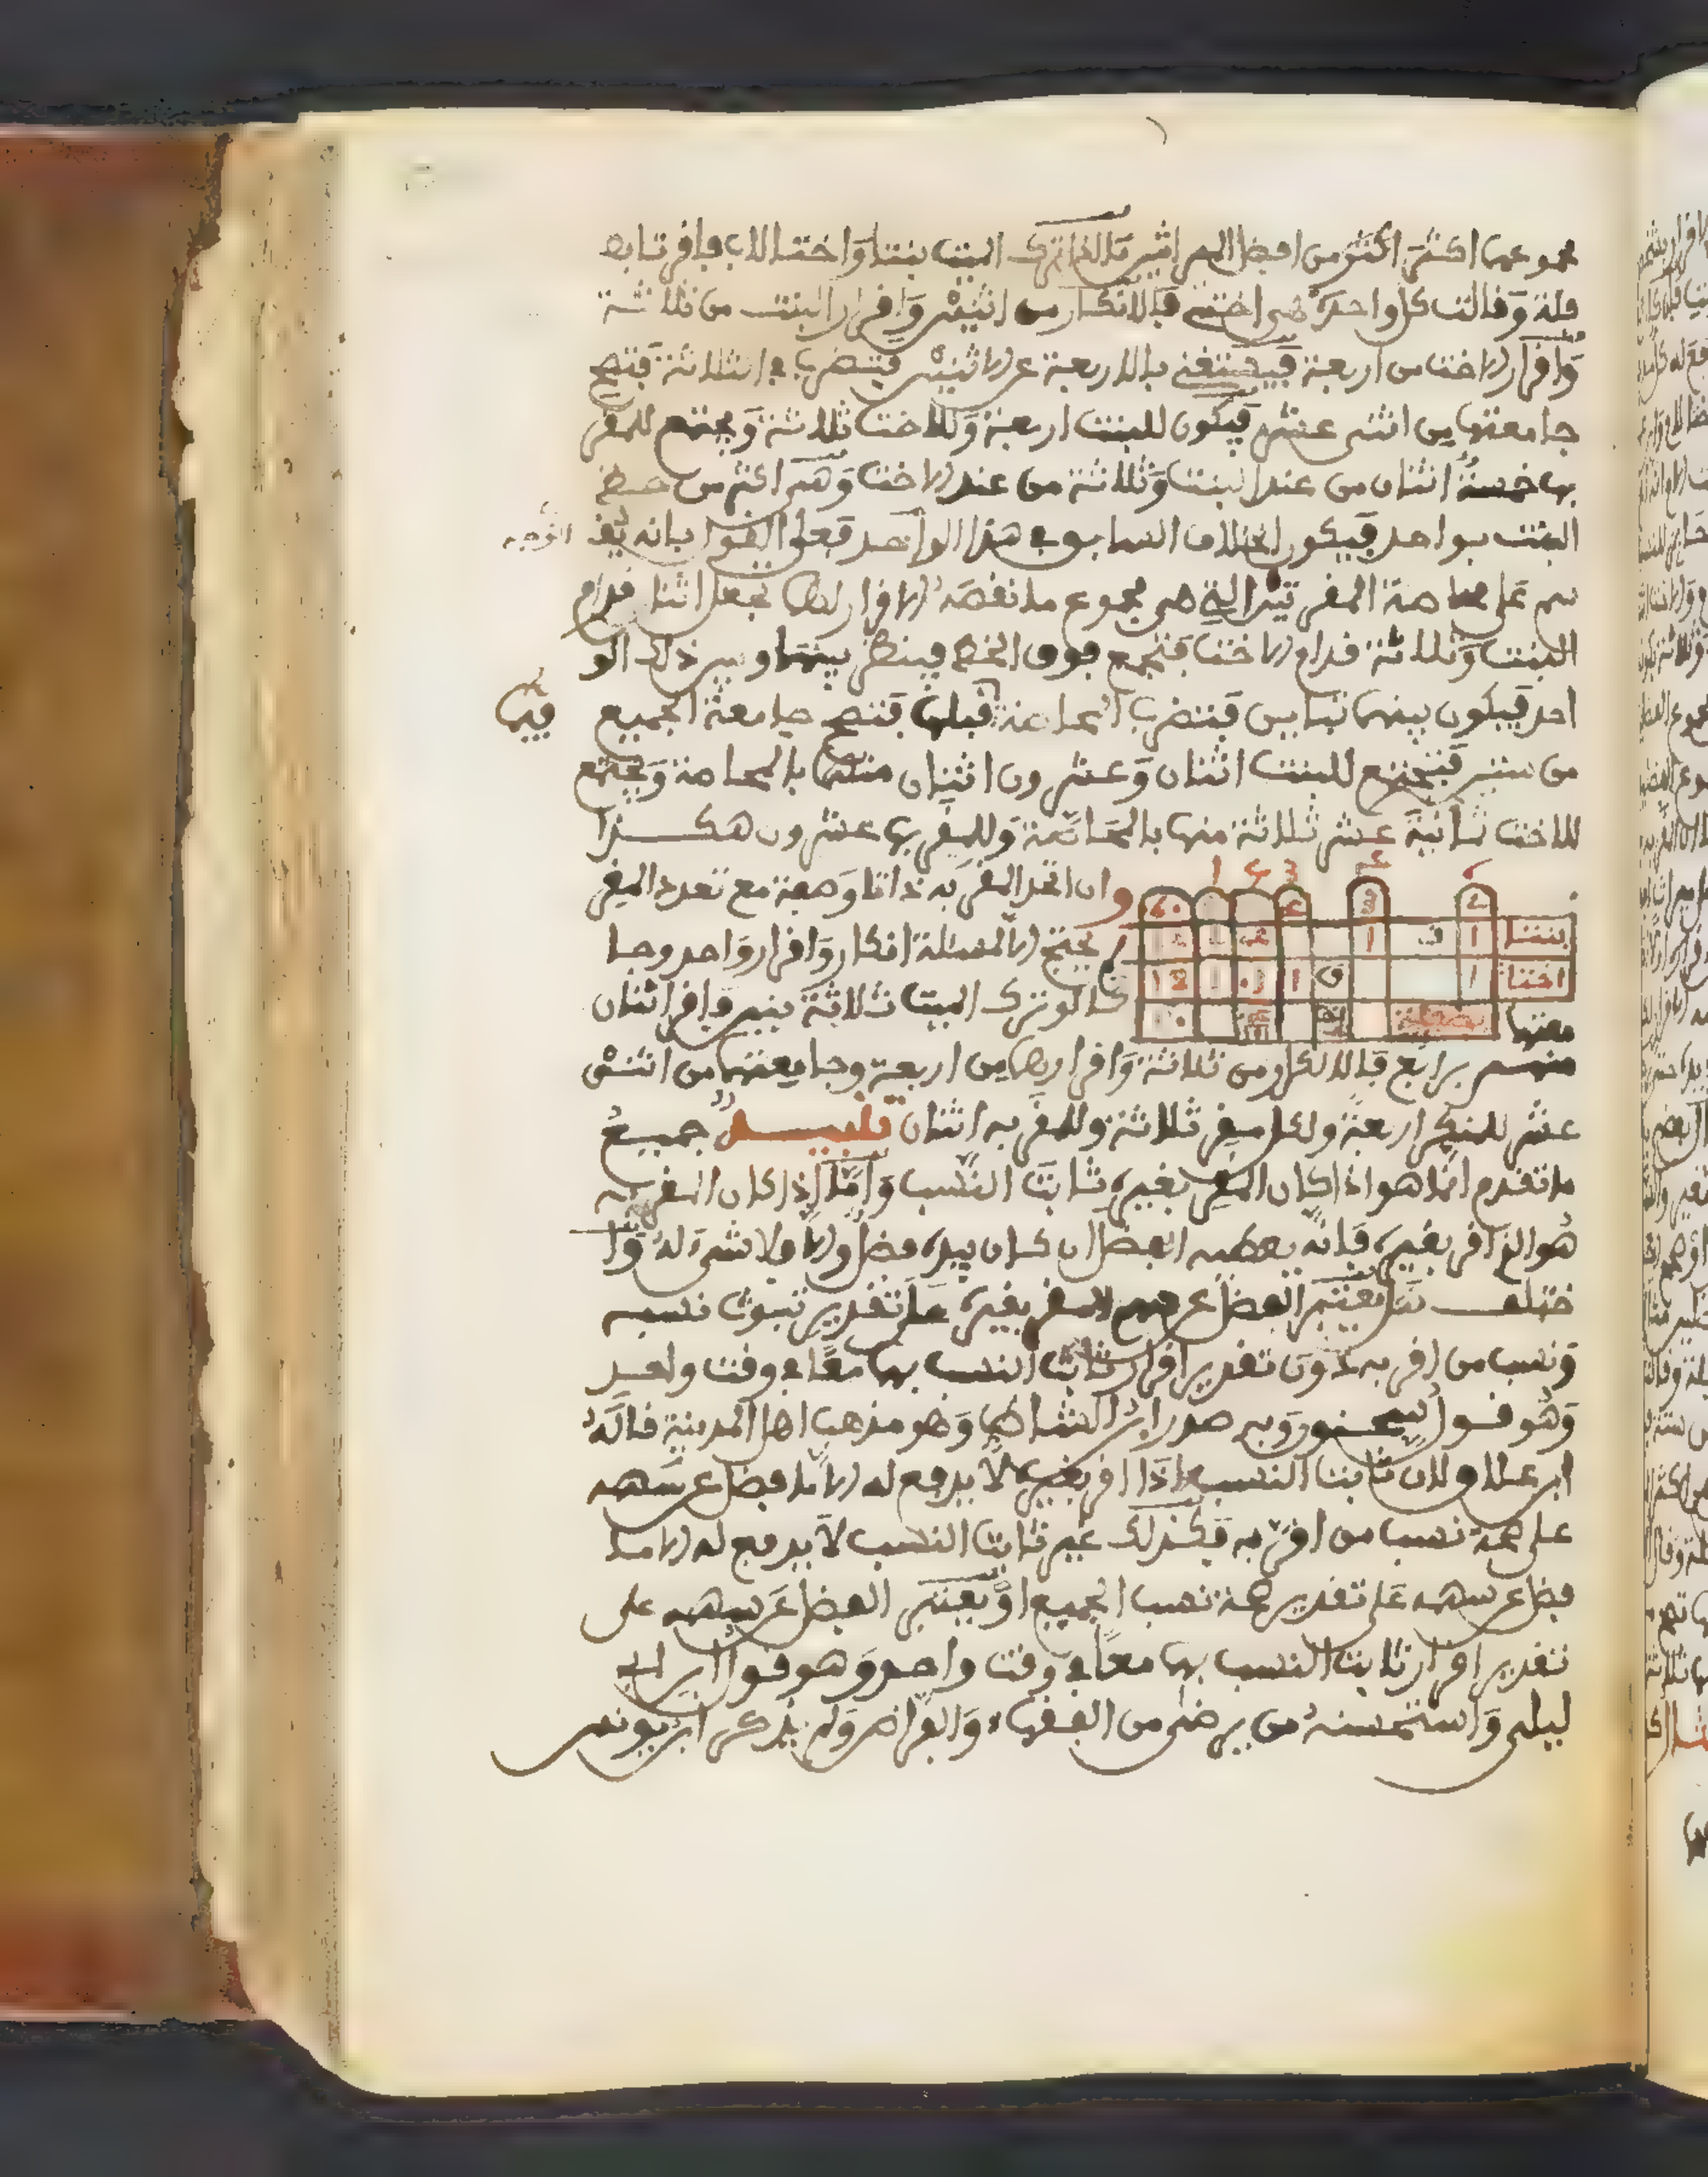 مجموعهما اكثر اكثر من افضل المراثين مثاله اذا ترك الميت بنتا واختا لاب فاقرتا بط
فلة وقالت كل واحدة هي اختي فالانكار من اثنين واقرار البنت من ثلاثة
واقرار الاخت من اربعة فيستغنى بالاربعة عن الاثنين فتضرب في الثلاثة فتصح
جامعتها من اثني عشر فيكون للبنت اربعة وللاخت ثلاثة ويجتمع للمقر
بها خمسة اثنان من عند البنت وثلاثة من عند الاخت وهي اكثر من حظ
البنت بواحد فيكون الخلاف السابق في هذا الواحد فعلى القول بانه يقـ
سم على محاصة المقرتين التي هي مجموع ما نقصه الاقرار لهما نجعل اثنا قدام
البنت وثلاثة قدام الاخت فتجمع فوق الخط فينظر بينها وبين ذلك الو
احد فيكون بينهما تباين فتضرب المحاصة قبلها فتصح جامعة الجميع
فيها
من ستين فيجتمع للبنت اثنان وعشرون اثنان منها بالمحاصة ويجتمع
للاخت ثمانية عشر ثلاثة منها بالمحاصة وللمقر بها عشرون هكذا
وان اتحد المقر به ذاتا وصفة مع تعدد المقر
بنتا
يجتمع المسئلة انكار واقرار واحد وجا
اختا
كما لو ترك الميت ثلاثة بنين واقر اثنان
معتها
منهم برابع فالانكار من ثلاثة واقرارهما من اربعة وجامعتهما من اثني
عشر للمنكر اربعة ولكل مقر ثلاثة وللمقر به اثنان تنبيه جميع
ما تقدم انما هو اذا كان المقر بغيره ثابت النسب واما اذا كان المقر به
هو الذي اقر بغيره فانه يعطيه الفضل ان كان بيده فضل والا فلا شيء له وا
ختلف هل يعتبر الفضل عن سهم المقر بغيره على تقدير ثبوت نسبه
ونسب من اقر به دون تقدير اقرار ثابت النسب بهما معا في وقت واحد
وهو قول سحنون وبه صدر ابن الشاط وهو مذهب اهل المدينة قاله
ابن علاق لان ثابت النسب اذا اقر بغيره لا يدفع له الا ما فضل عن سهمه
على صحة نسب من اقر به فكذلك غير ثابت النسب لا يدفع له الا ما
فضل عن سهمه على تقدير صحة نسب الجميع او يعتبر الفضل عن سهمه على
تقدير اقرار ثابت النسب بهما معا في وقت واحد وهو قول ابن ابي
ليلى واستحسنه من يرضى من الفقهاء والفراض ولم يذكر ابن يونس